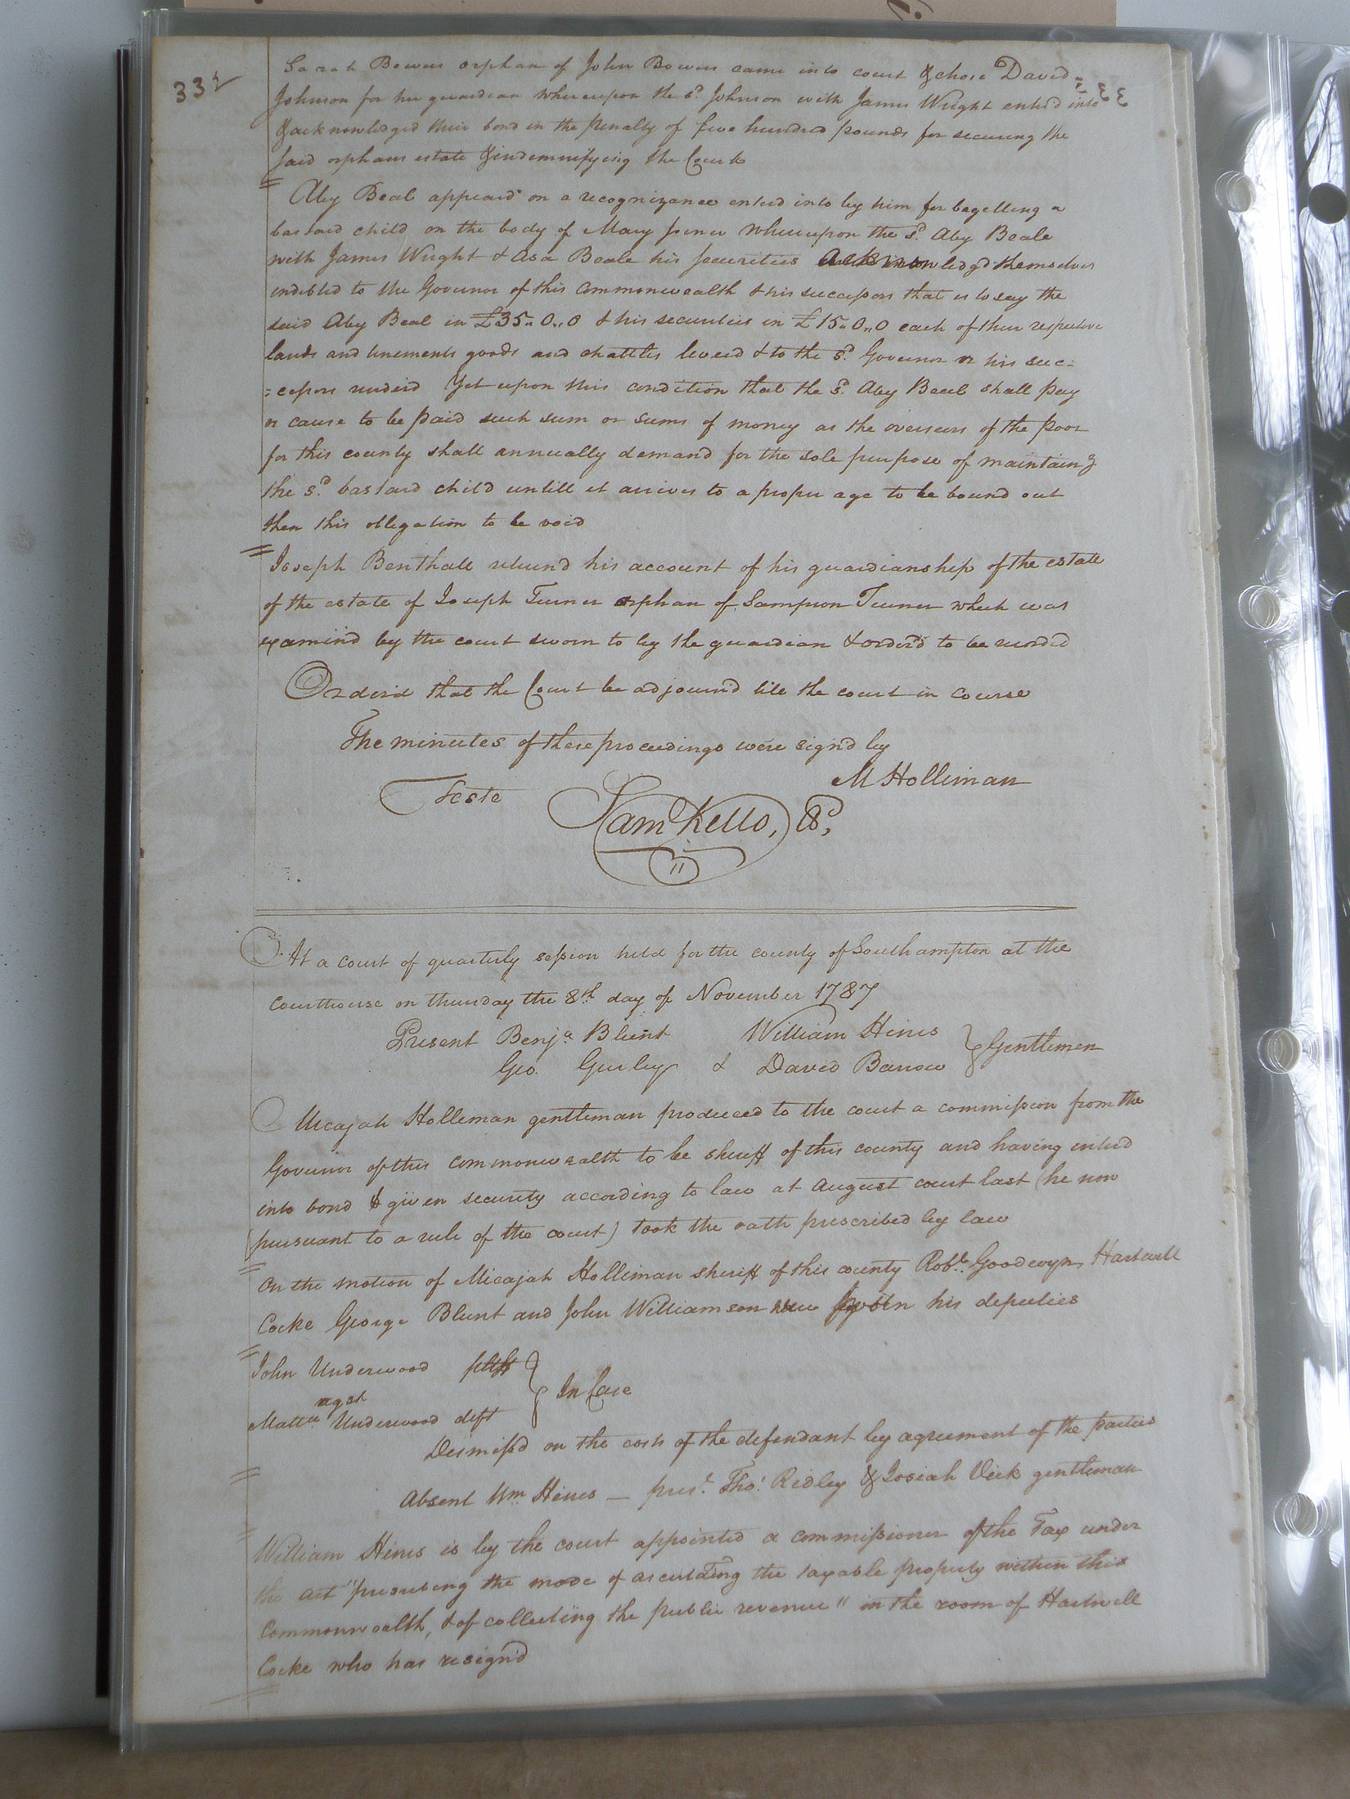 332
Sarah Bowers orphan of John Bowers came into court & chose David
Johnson for her guardian whereupon the sd. Johnson with James Wright enterd into
& acknowledged their bond in the penalty of five hundred pounds for securing the
said orphans estate & indemnifying the Court
Aby Beal appeard on a recognizance enterd into by him for begetting a
bastard child on the body of Mary whereupon the sd. Aby Beale
with James Wright & Asa Beale his securities acknowledgd themselves
indebted to the Govenor of this commonwealth & his successors that is to say the
said Aby Beal in £35..0..0 & his securities in £15..0..0 each of their respective
lands and tenements goods and chattles levied & to the sd. Govenor or his suc=
=cessors renderd Yet upon this condition that the sd. Aby Beal shall pay
or cause to be paid such sum or sums of money as the overseers of the poor
for this county shall annually demand for the sole purpose of maintaing
the sd. bastard child untill it arrives to a proper age to be bound out
then this obligation to be void
Joseph Benthall returnd his account of his guardianship of the estate
of the estate of Joseph Turner orphan of Sampson Turner which was
examind by the court sworn to by the guardian & orderd to be recorded
Orderd that the Court be adjournd till the court in course
The minutes of these proceedings were signd by
M Holliman
Teste
Sam Kello,
At a court of quarterly session held for the county of Southampton at the
courthouse on thursday the 8th day of November 1787
Present Benja. Blunt William Hines
Geo. Gurley & David Barrow } Gentlemen
Micajah Holleman gentleman produced to the court a commission from the
Govenor of this commonwealth to be sheriff of this county and having enterd
into bond & given security according to law at August court last (he now
(pursuant to a rule of the court) took the oath prescribed by law
On the motion of Micajah Holliman sheriff of this county Robt. Goodwyn Hartwell
Cocke George Blunt and John Williamson were sworn his deputies
John Underwood pltff
agst } In Case
Matthw Underwood deft
Desmissd on the costs of the defendant by agreement of the parties
Absent Wm Hines — prest. Thos. Ridley & Josiah Vick gentleman
William Hines is by the court appointed a commissioner of the Tax under
the act "prescribing the mode of ascertaing the taxable property within this
Commonwealth, & of collecting the public revenue" in the room of Hartwell
Cocke who has resignd